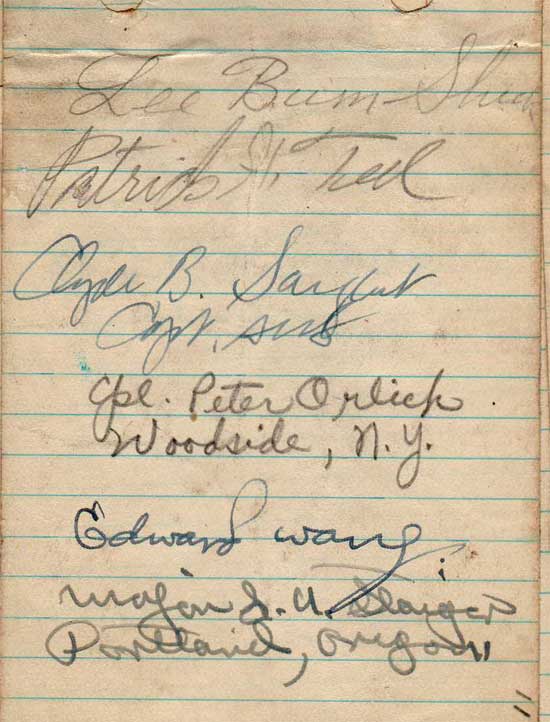 Lee Bum-Shuk
Patrick H. Teel
Clyde B. Sargent
Capt. AUS
Cpl. Peter Orlich
Woodside, N.Y.
Edward Wang
Major
Portland, Oregon